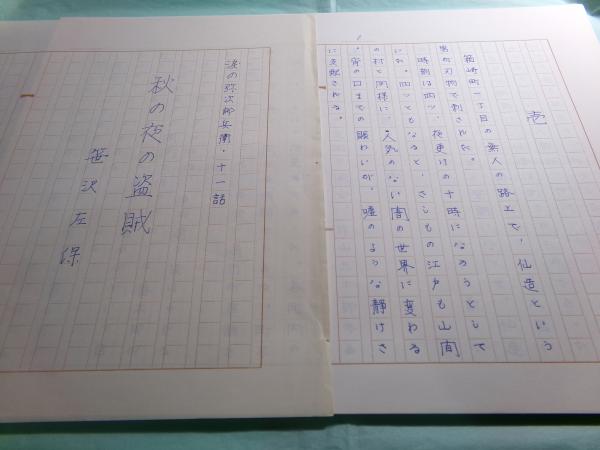 壱
箱崎町一丁目の無人の路上で、仙造という
男が刃物で刺された。
時刻は四ツ、夜更けの十時になろうとして
いた。四ツともなると、さしもの江戸も山間
の村と同様に、人気のない闇の世界に変わる
。宵の口までの賑わいが、嘘のような静けさ
に支配される。
涙の弥次郎兵衛・十一話
秋の夜の盗賊
笹沢左保